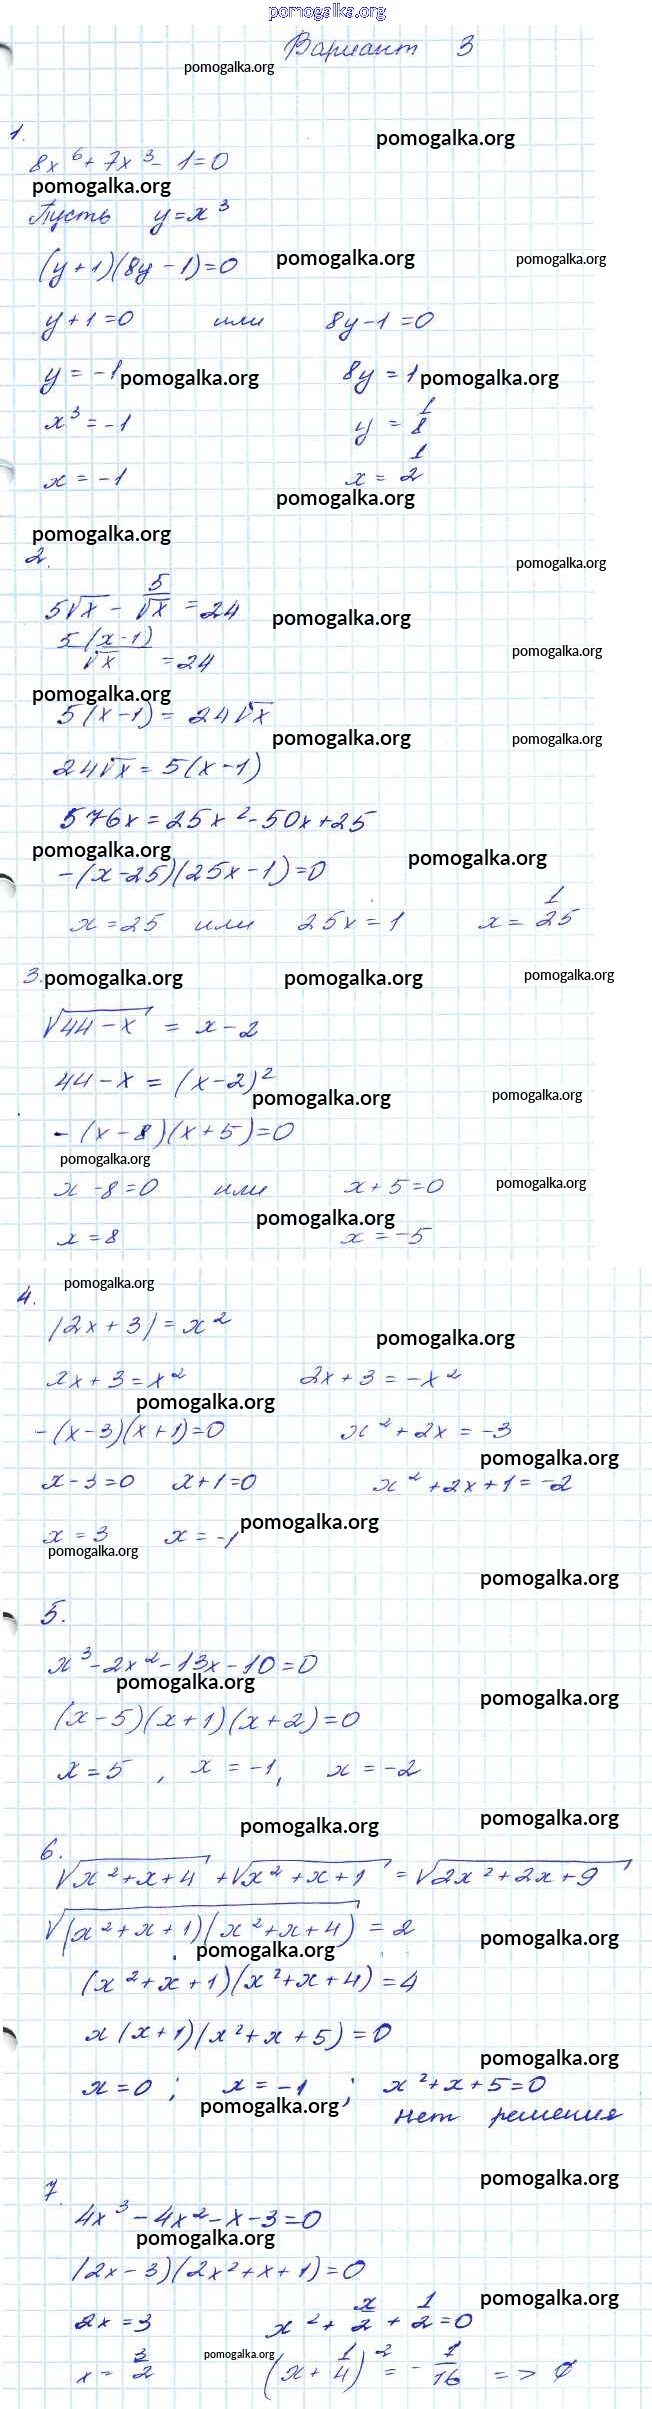 pomogalka.org
Вариант 3
pomogalka.org
1.
pomogalka.org
8x⁶ + 7x³ - 1 = 0
pomogalka.org
Пусть y = x³
(y + 1)(8y - 1) = 0 pomogalka.org pomogalka.org
y + 1 = 0 или 8y - 1 = 0
y = -1 pomogalka.org 8y = 1 pomogalka.org
x³ = -1 y = 1/8
x = -1 x = 1/2
pomogalka.org
pomogalka.org
2.
pomogalka.org
5√x - 5/√x = 24 pomogalka.org
5(x-1)/√x = 24 pomogalka.org
pomogalka.org
5(x-1) = 24√x
pomogalka.org pomogalka.org
24√x = 5(x-1)
576x = 25x² - 50x + 25
pomogalka.org pomogalka.org
-(x-25)(25x-1) = 0
x = 25 или 25x = 1 x = 1/25
3. pomogalka.org pomogalka.org pomogalka.org
√44-x = x - 2
44 - x = (x-2)²
pomogalka.org pomogalka.org
-(x-8)(x+5) = 0
pomogalka.org
x - 8 = 0 или x + 5 = 0 pomogalka.org
pomogalka.org
x = 8 x = -5
pomogalka.org
4.
|2x + 3| = x²
pomogalka.org
2x + 3 = x² 2x + 3 = -x²
pomogalka.org
-(x-3)(x+1) = 0 x² + 2x = -3
pomogalka.org
x - 3 = 0 x + 1 = 0 x² + 2x + 1 = -2
pomogalka.org
x = 3 x = -1
pomogalka.org
pomogalka.org
5.
x³ - 2x² - 13x - 10 = 0
pomogalka.org
pomogalka.org
(x-5)(x+1)(x+2) = 0
x = 5 , x = -1, x = -2
pomogalka.org pomogalka.org
6.
√x²+x+4 + √x²+x+1 = √2x²+2x+9
√(x²+x+1)(x²+x+4) = 2
pomogalka.org
pomogalka.org
(x²+x+1)(x²+x+4) = 4
x(x+1)(x²+x+5) = 0
pomogalka.org
x = 0 ; x = -1 ; x²+x+5 = 0
pomogalka.org
нет решения
pomogalka.org
7.
4x³ - 4x² - x - 3 = 0
pomogalka.org
(2x-3)(2x²+x+1) = 0
pomogalka.org
2x = 3 x² + x/2 + 1/2 = 0
pomogalka.org
x = 3/2 (x + 1/4)² = - 1/16 => ∅